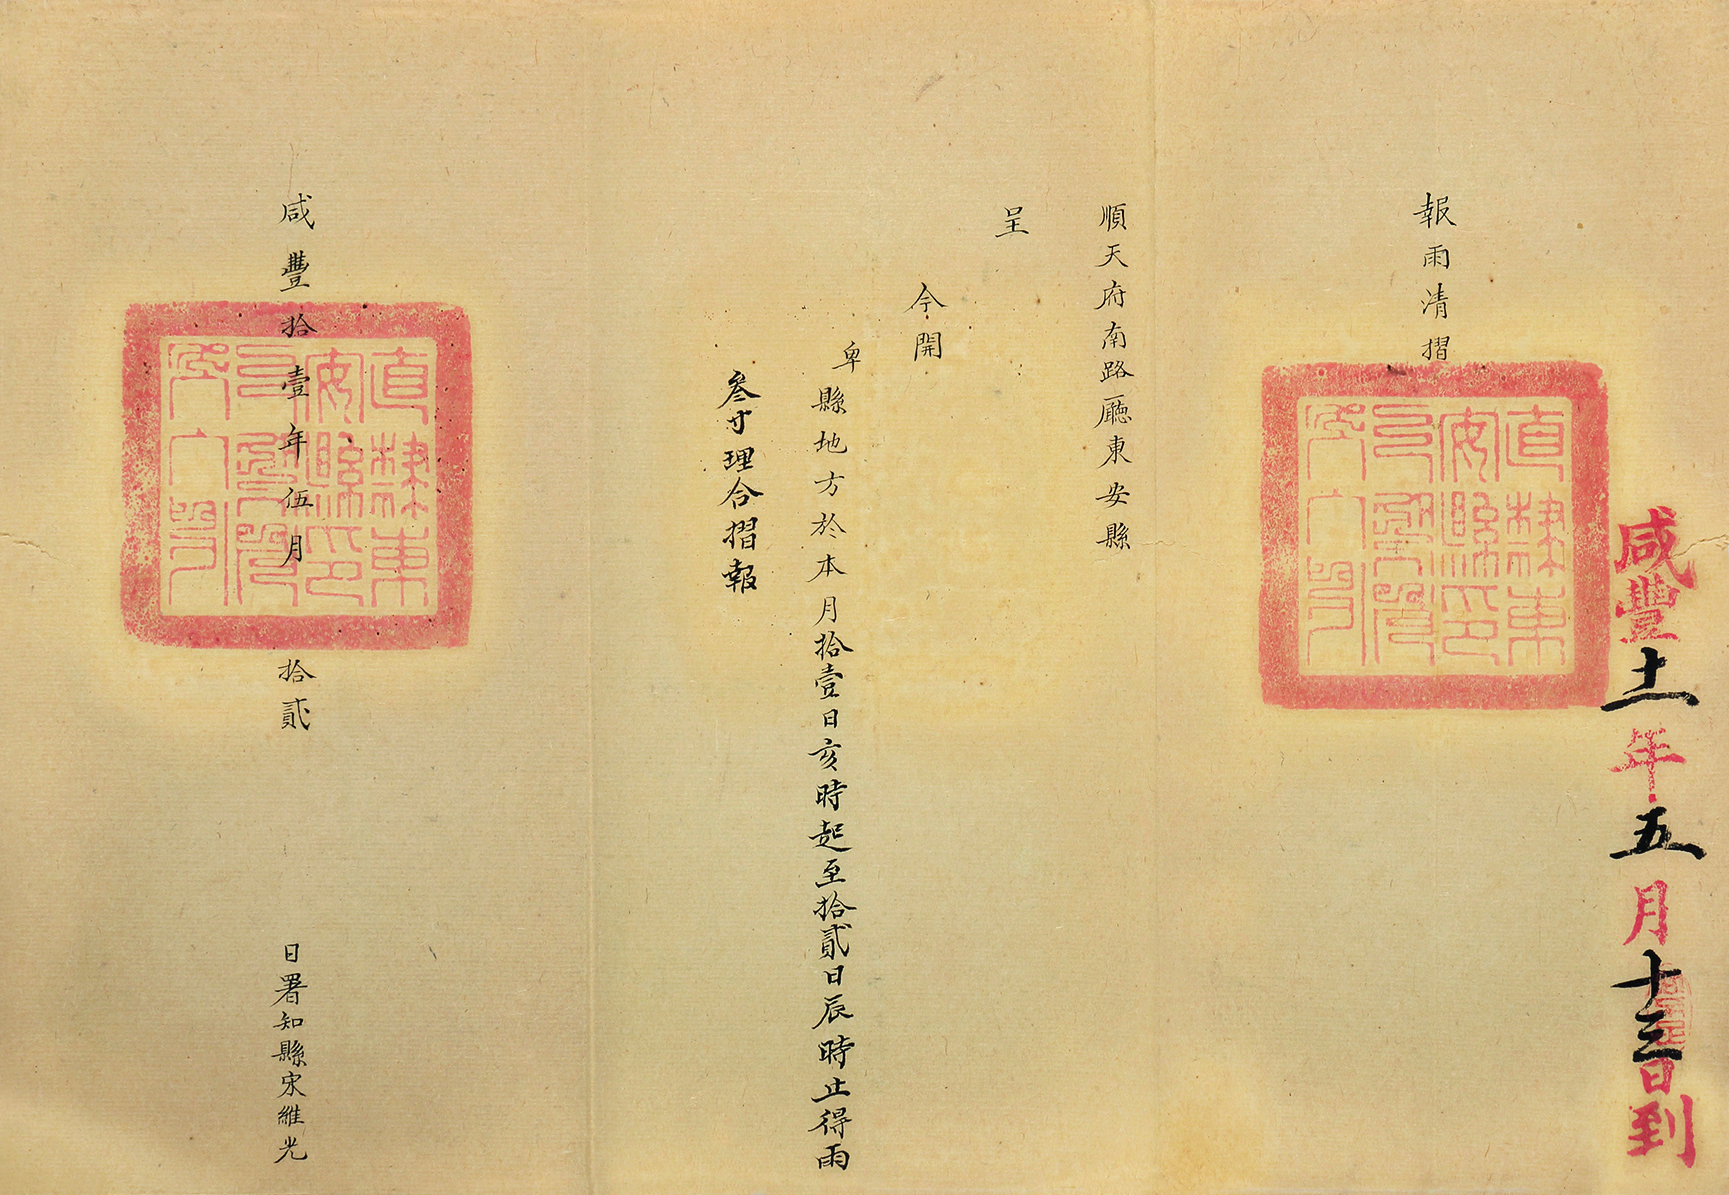 咸豐十一年五月十三日到
報雨清摺
直隸東安縣印
順天府南路廳東安縣
呈
今開
卑縣地方於本月拾壹日亥時起至拾貳日辰時止得雨
叄寸理合摺報
咸豐拾壹年伍月拾貳日署知縣宋維光
直隸東安縣印